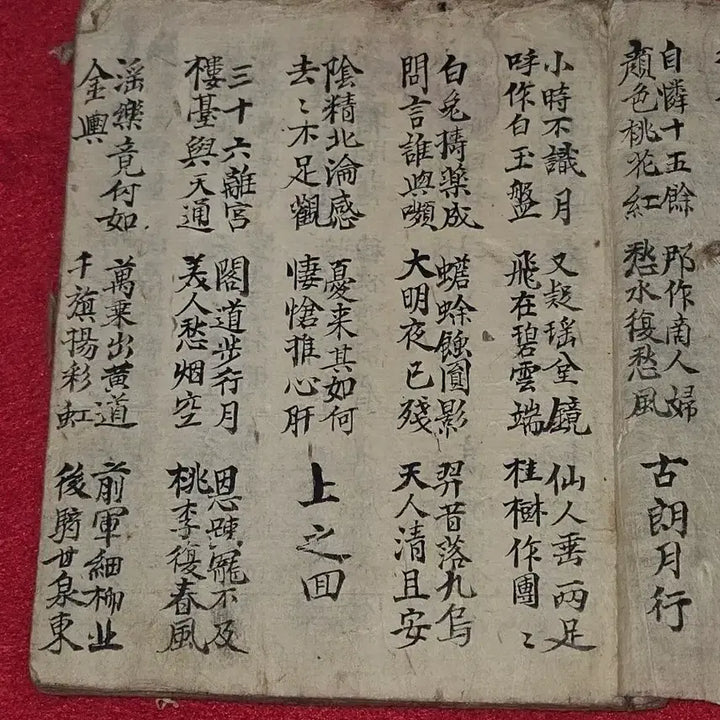 自憐十五餘
顏色桃花紅
那作商人婦
愁水復愁風
古朗月行
小時不識月
呼作白玉盤
又疑瑤全鏡
飛在碧雲端
仙人垂兩足
桂樹作團〻
白兔擣藥成
問言誰與嚬
蟾蜍蝕圓影
大明夜已殘
羿昔落九烏
天人清且安
陰精北淪感
去〻不足觀
憂来其如何
悽愴摧心肝
上之回
三十六離宮
樓臺與天通
閣道步行月
美人愁烟空
恩踈寵不及
桃李復春風
滛樂竟何如
金輿
萬乗出黄道
千旗揚彩虹
前軍細柳北
後騎甘泉東